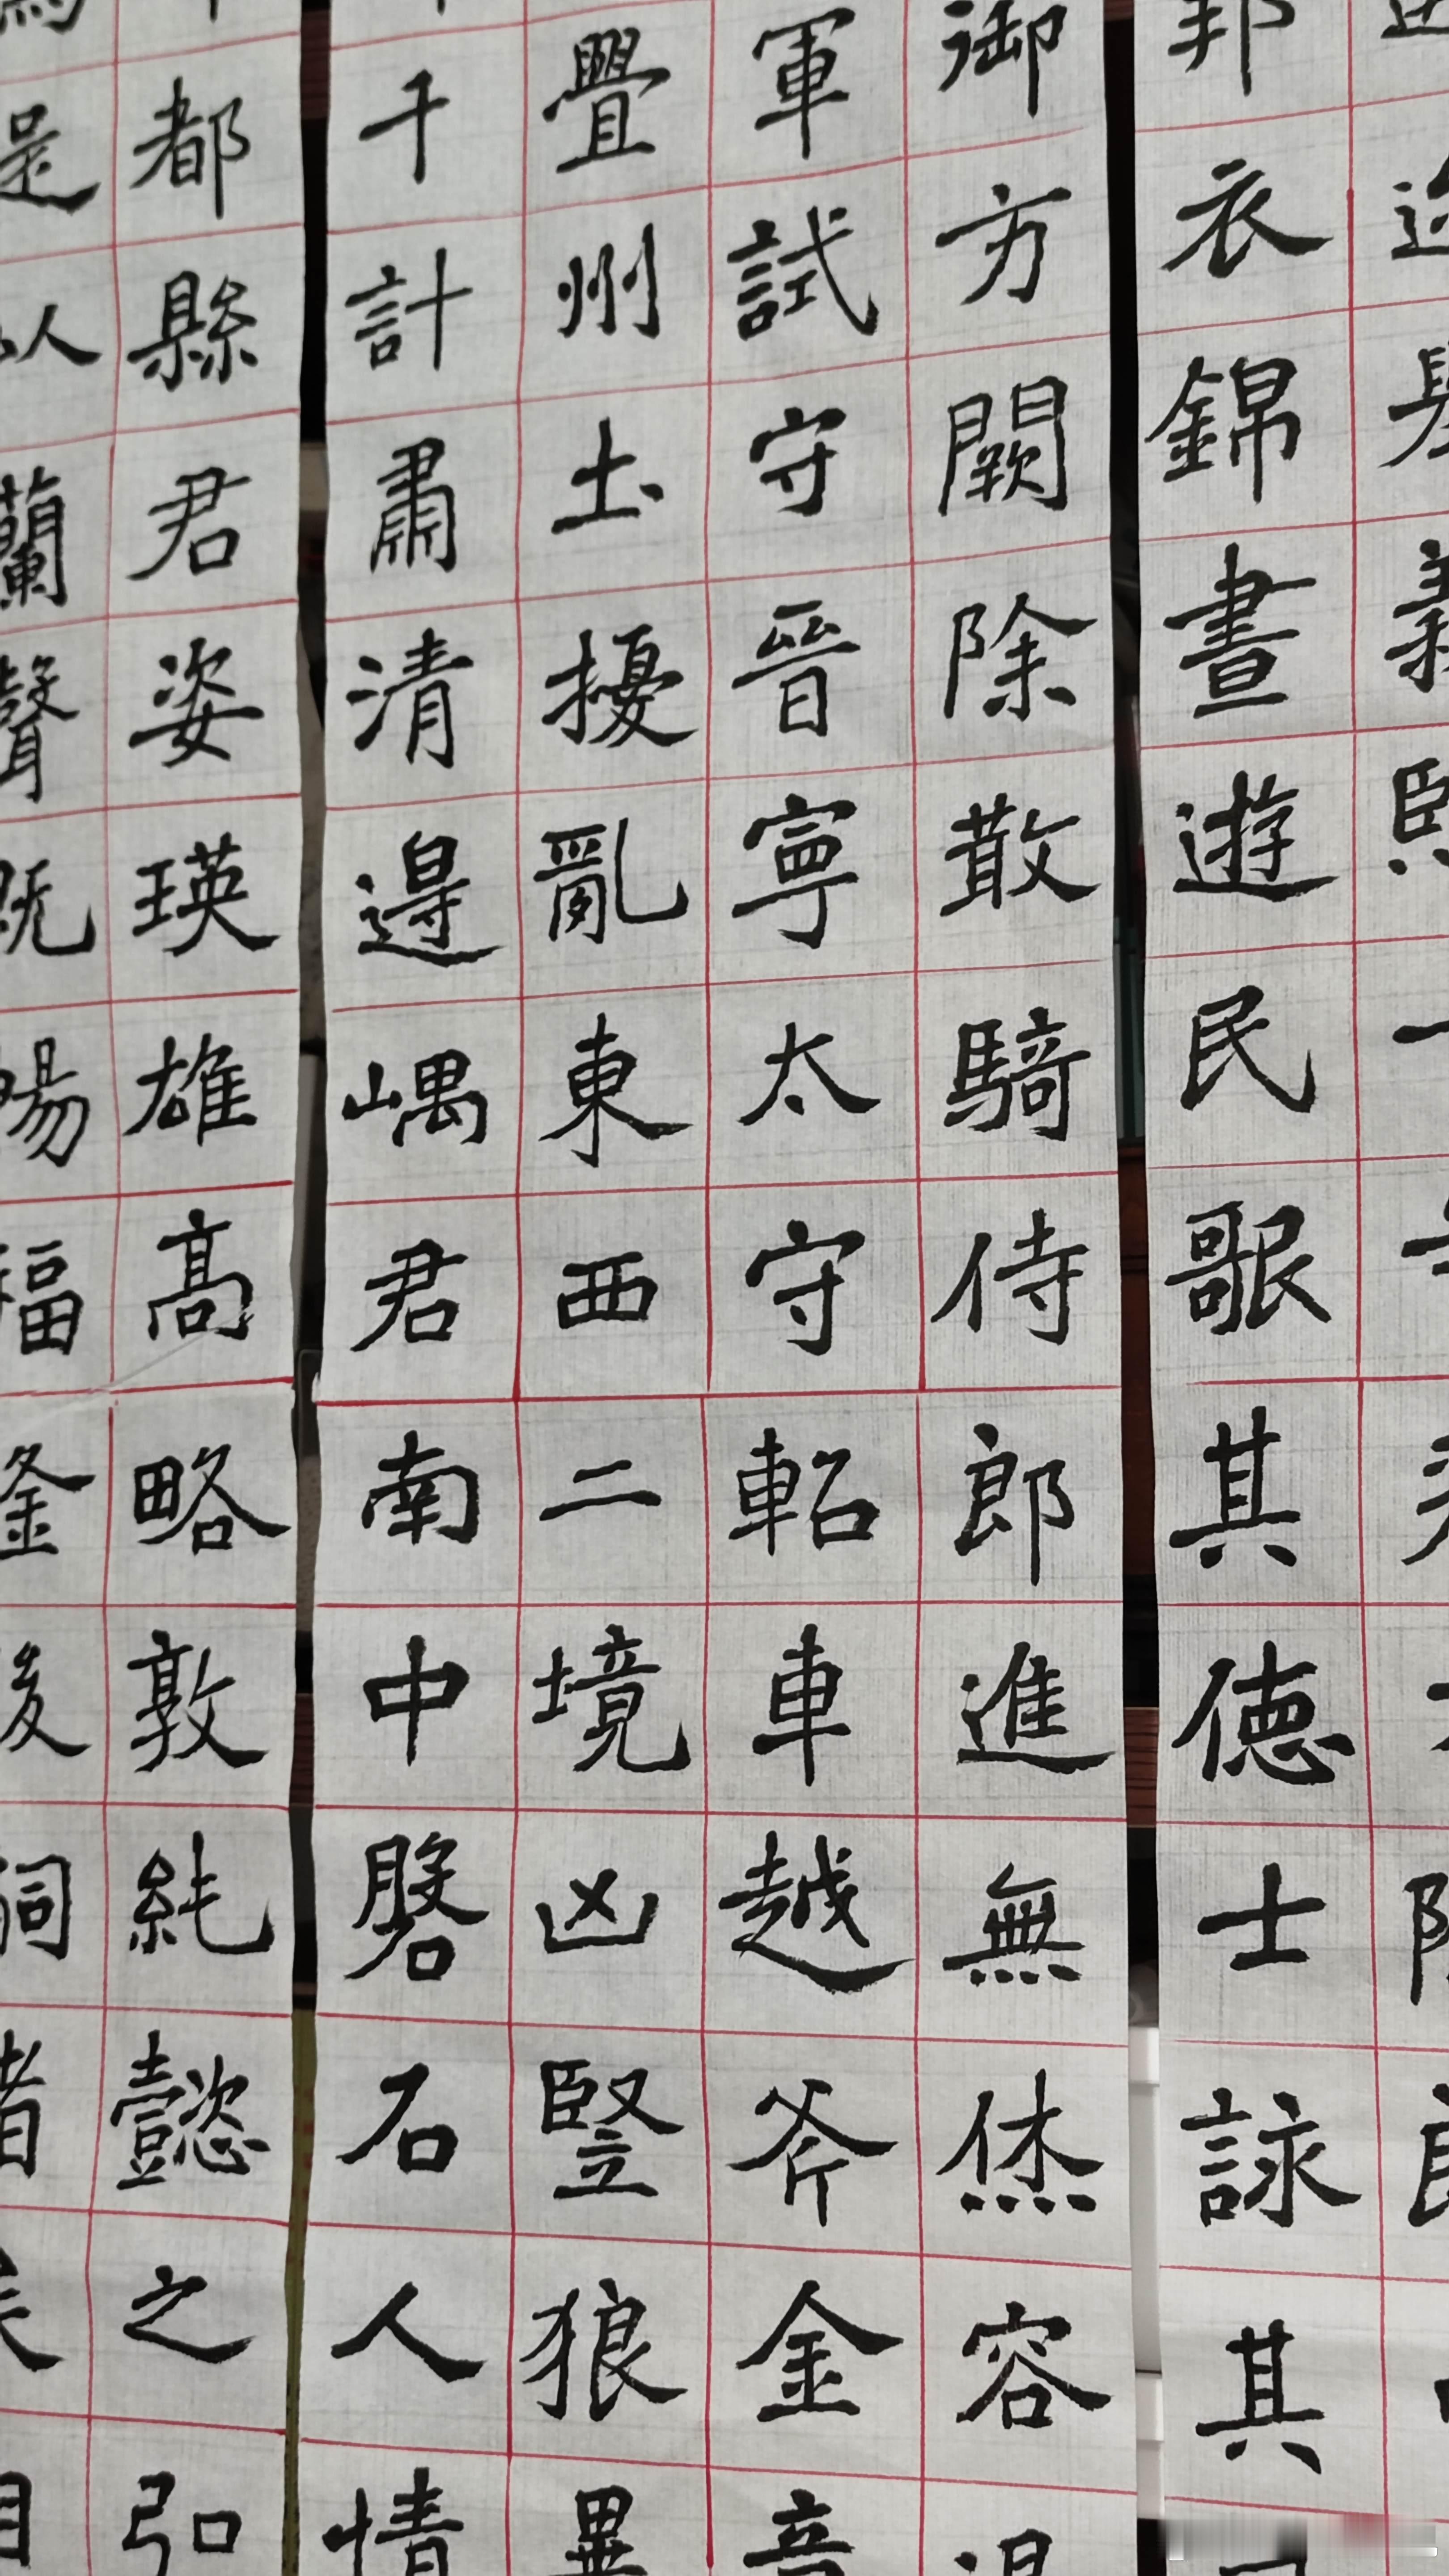 邦衣錦晝遊民歌其德士詠其
御方闕除散騎侍郎進無烋容
軍試守晉寧太守軺車越斧金
舋州土擾亂東西二境凶豎狼
千計肅清邊嵎君南中磐石人情
都縣君姿瑛雄高略敦純懿之弘
是以蘭聲既暢福